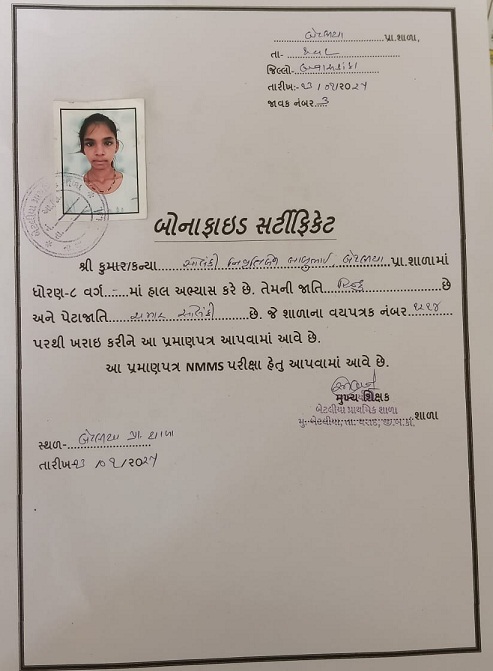 બેટલીયા પ્રા.શાળા,
તા- થરાદ
જિલ્લો:- બનાસકાંઠા
તારીખ:- ૨૩/૦૧/૨૦૨૫
જાવક નંબર 3
બોનાફાઇડ સર્ટીફિકેટ
શ્રી કુમાર/કન્યા સોલંકી બાબુભાઈ, બેટલીયા પ્રા.શાળામાં
ધોરણ-૮ વર્ગ - માં હાલ અભ્યાસ કરે છે. તેમની જાતિ હિન્દુ છે
અને પેટાજાતિ ચમાર સોલંકી છે. જે શાળાના વયપત્રક નંબર
પરથી ખરાઇ કરીને આ પ્રમાણપત્ર આપવામાં આવે છે.
આ પ્રમાણપત્ર NMMS પરીક્ષા હેતુ આપવામાં આવે છે.
મુખ્ય શિક્ષક
બેટલીયા પ્રાથમિક શાળા
મુ. બેટલીયા, તા. થરાદ, જી.બ.કાં. શાળા
સ્થળ- બેટલીયા પ્રા. શાળા
તારીખ ૨૩/૦૧/૨૦૨૫